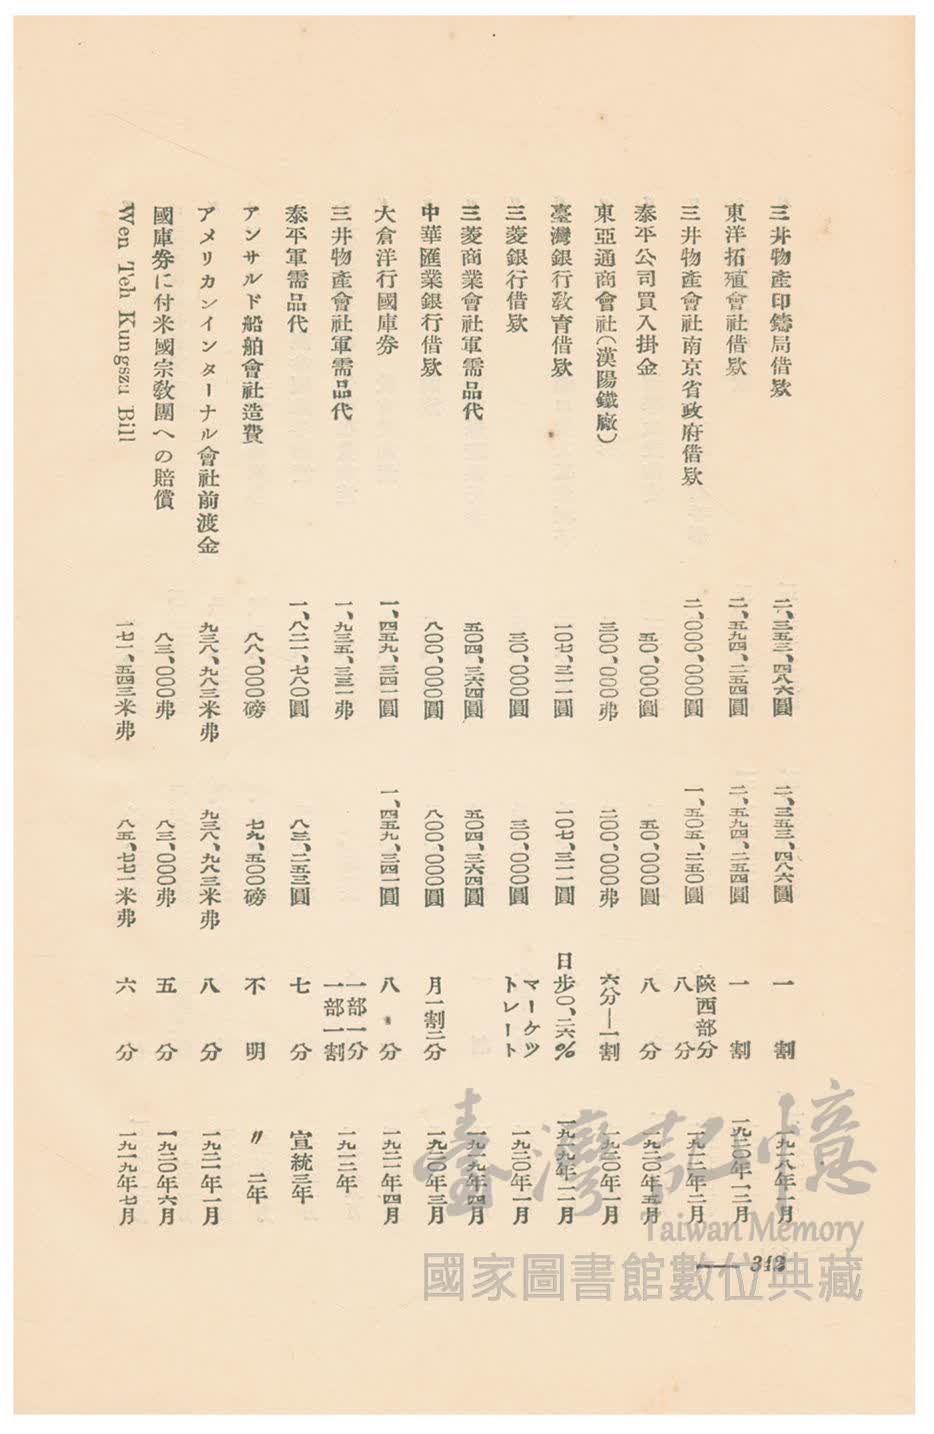 三井物産印鑄局借欵 二、三五三、四八六圓 二、三五三、四八六圓 一割 一九一八年一月
東洋拓殖會社借欵 二、五九四、二五四圓 二、五九四、二五四圓 一割 一九二〇年一二月
三井物產會社南京省政府借欵 二、〇〇〇、〇〇〇圓 一、五〇五、二五〇圓 陝西部分八分 一九一二年二月
泰平公司買入掛金 五〇、〇〇〇圓 五〇、〇〇〇圓 八分 一九二〇年五月
東亞通商會社(漢陽鐵廠) 三〇〇、〇〇〇弗 二〇〇、〇〇〇弗 六分—一割 一九二〇年一月
臺灣銀行敎育借欵 一〇七、三一一圓 一〇七、三一一圓 日步〇、二六% 一九一九年一二月
三菱銀行借欵 三〇、〇〇〇圓 三〇、〇〇〇圓 マーケットレート 一九二〇年一月
三菱商業會社軍需品代 五〇四、三六四圓 五〇四、三六四圓 一九一九年四月
中華匯業銀行借欵 八〇〇、〇〇〇圓 八〇〇、〇〇〇圓 月一割三分 一九二〇年三月
大倉洋行國庫券 一、四五九、三四一圓 一、四五九、三四一圓 八分 一九二一年四月
三井物產會社軍需品代 一、九三五、三三一弗 一部一分一部一割 一九一二年
泰平軍需品代 一、八二一、七八〇圓 八三、二五三圓 七分 宣統三年
アンサルド船舶會社造費 八八、〇〇〇磅 七九、五〇〇磅 不明 〃 二年
アメリカンインターナル會社前渡金 九三八、九八三米弗 九三八、九八三米弗 八分 一九二一年一月
國庫劵に付米國宗敎團への賠償 八三、〇〇〇弗 八三、〇〇〇弗 五分 一九二〇年六月
Wen Teh Kungszu Bill 一七一、五四三米弗 八五、七七一米弗 六分 一九一九年七月
— 312
臺灣記憶
Taiwan Memory
國家圖書館數位典藏